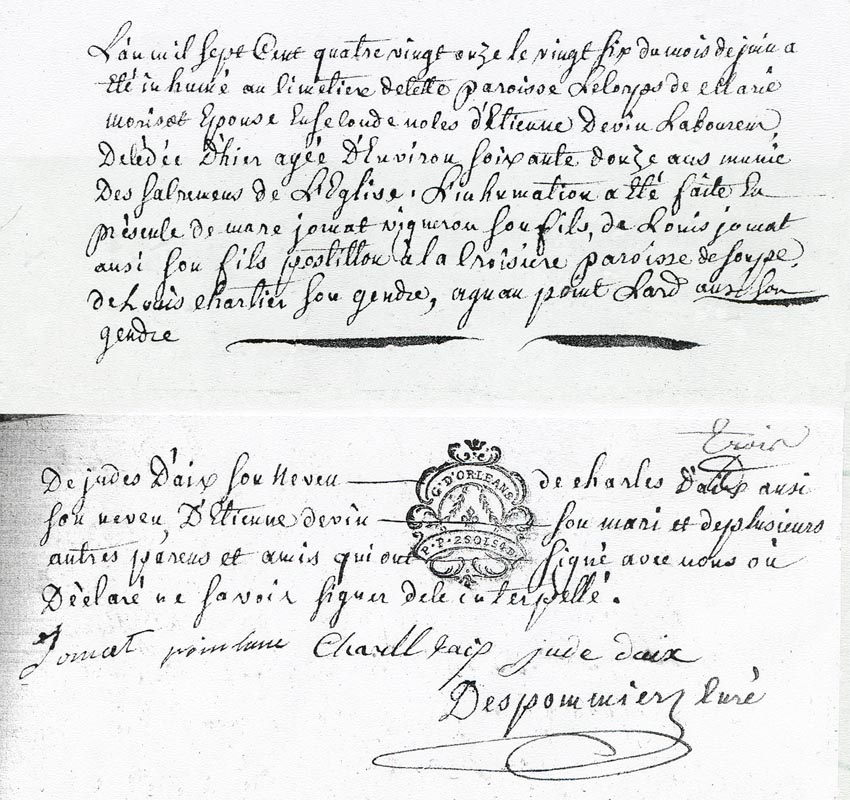 L'an mil sept Cent quatre vingt onze le vingt six du mois de juin a
Eté inhumé au Cimetiere decette paroisse Le Corps de Marie
moriset Epouse En seconde noces d'Etienne Devin Laboureur
Décédée D'hier agée D'Environ soixante douze ans munie
Des sacremens de L'Eglise. L'inhumation a Eté faite En
présence de marc jomat vigneron son fils, de Louis jomat
ausi son fils postillon à la Croisiere paroisse de soupe,
de Louis charlier son gendre, agnan point Lard ausi son
gendre
trois
De judes D'aix son Neveu de charles D'aix ausi
son neveu, D'Etienne devin son mari et de plusieurs
autres parens et amis qui ont signé avec nous où
Déclaré ne savoir signer de ce interpellé.
G. D'ORLEANS
P.P. 2 SOLS 4 D.
Jomat Charll daix jude daix
Despommier Curé